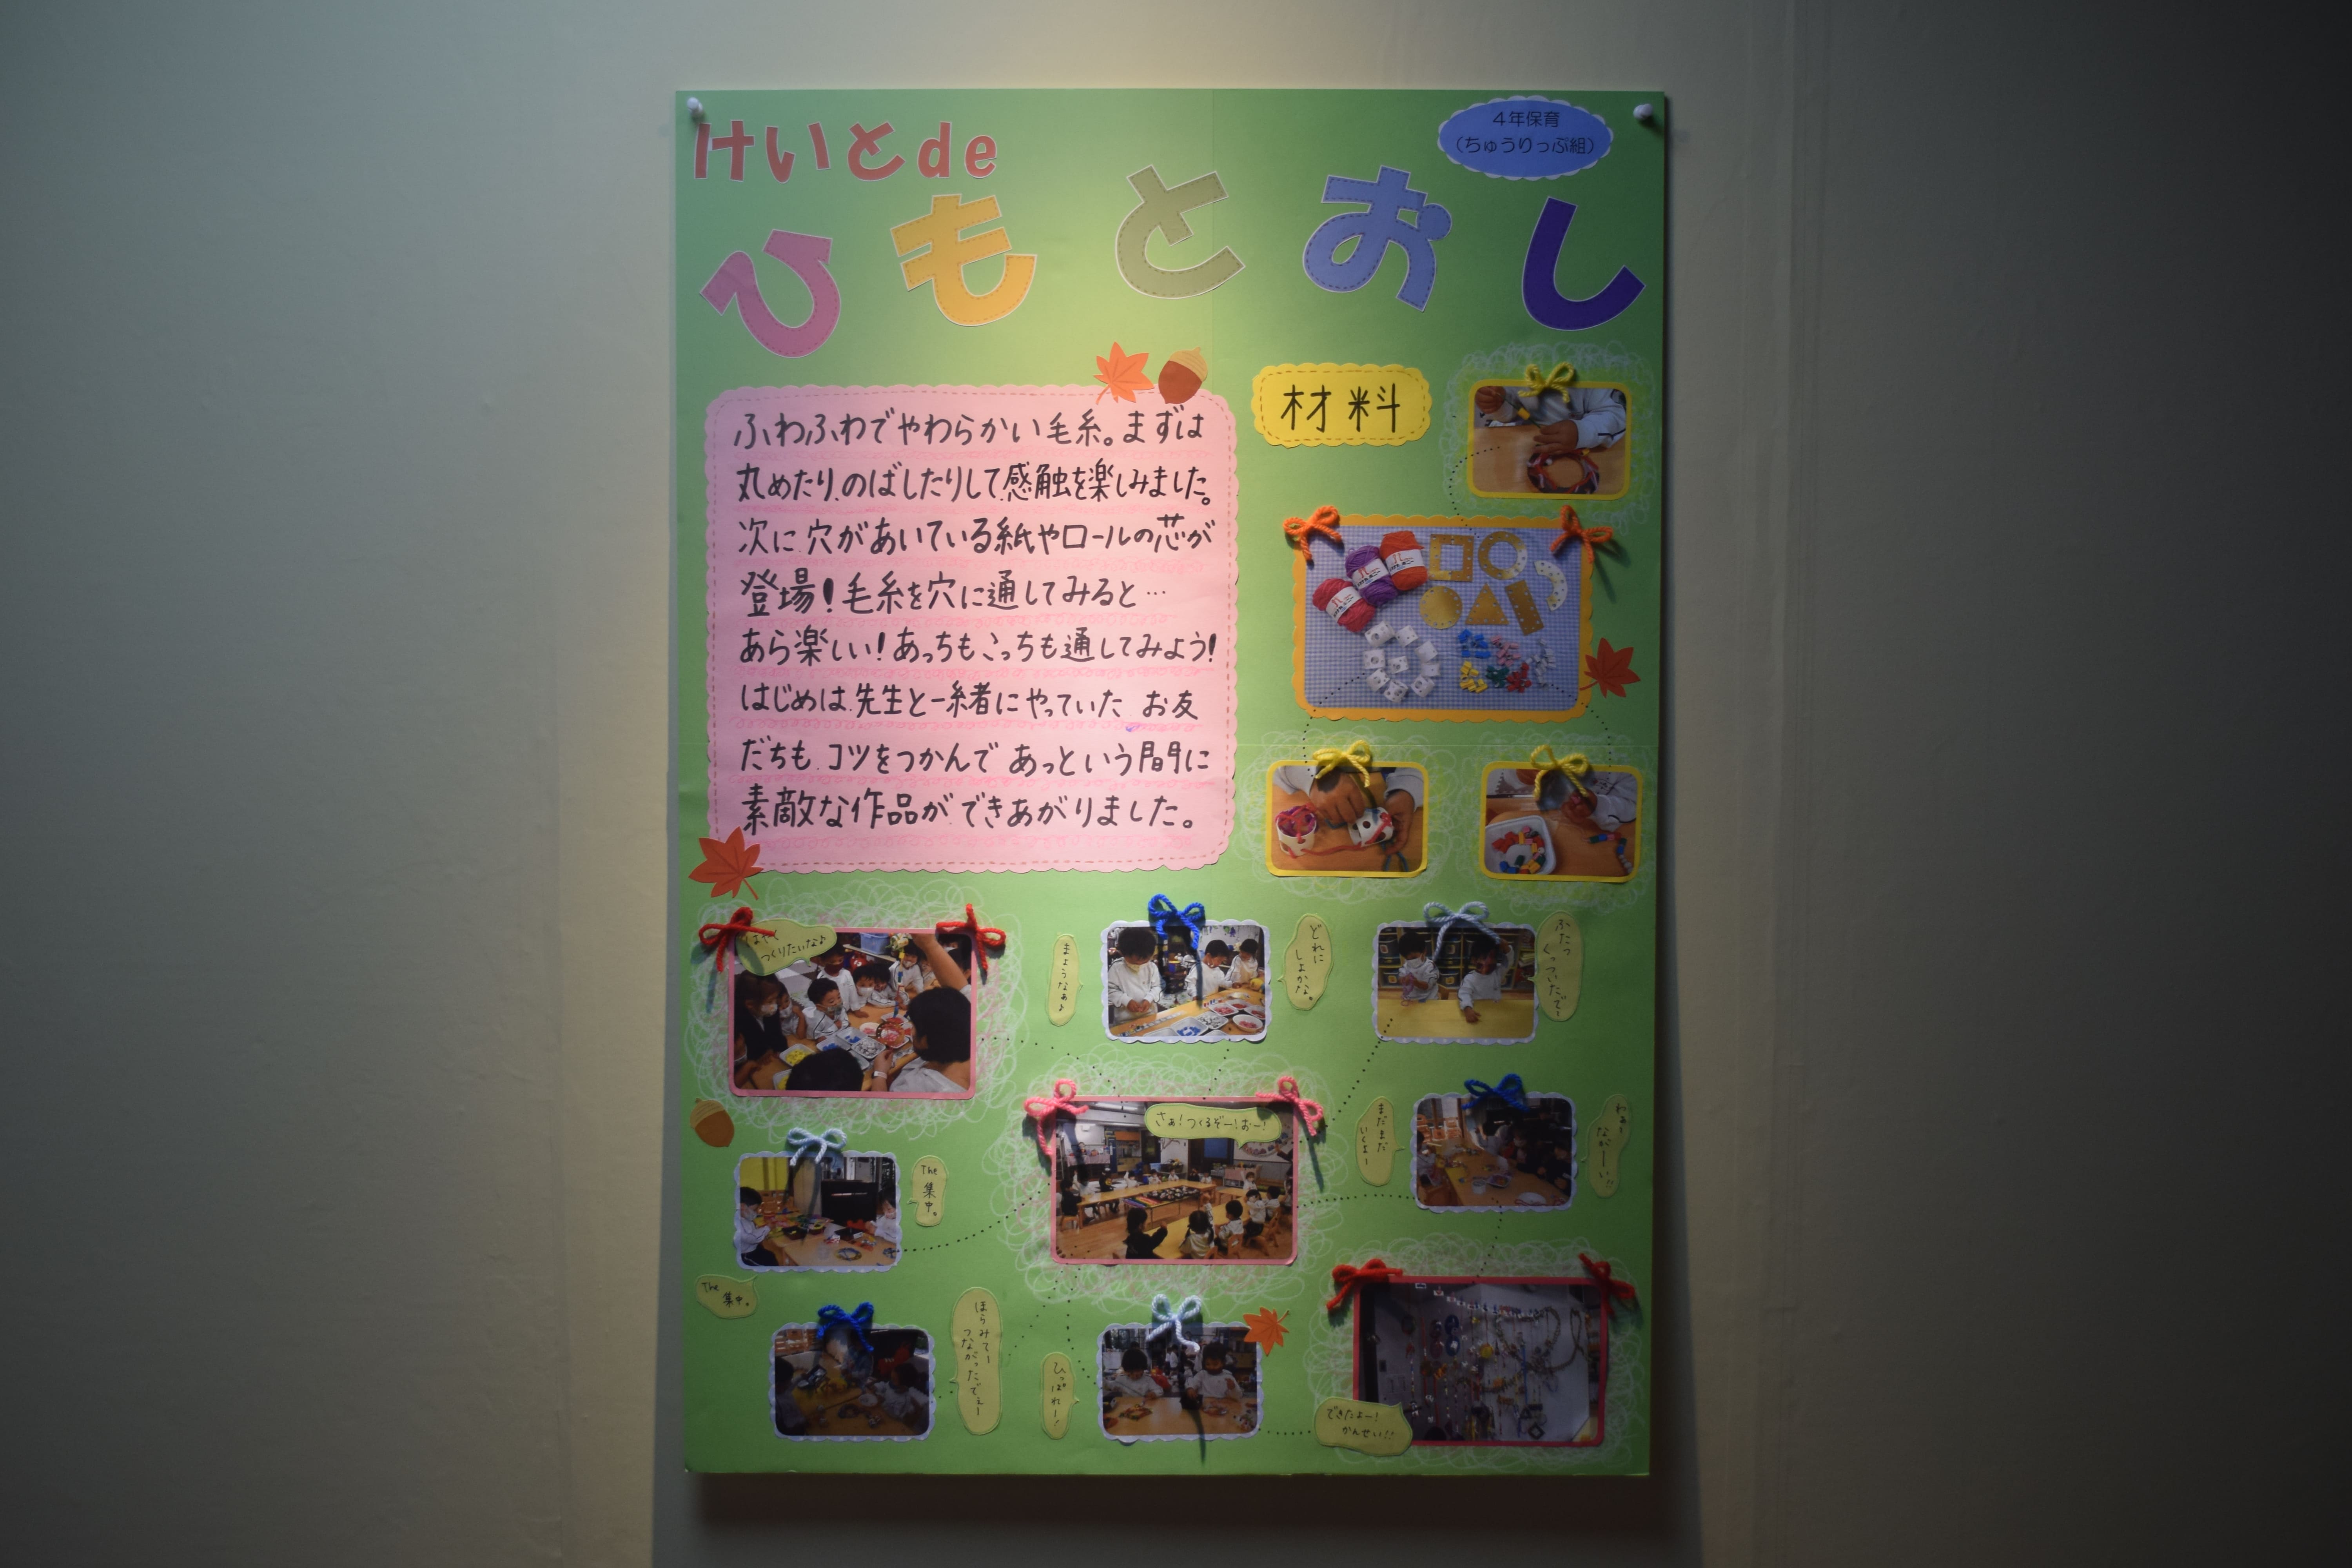 けいとde
ひもとおし
4年保育
(ちゅうりっぷ組)
ふわふわでやわらかい毛糸。まずは
丸めたり、のばしたりして感触を楽しみました。
次に穴があいている紙やロールの芯が
登場!毛糸を穴に通してみると…
あら楽しい!あっちもこっちも通してみよう!
はじめは先生と一緒にやっていた お友
だちも コツをつかんで あっという間に
素敵な作品ができあがりました。
材料
つくりたいな♪
まようなぁ♪
どれに
しよかな。
ふたつ
くっついたで~
The
集中。
さぁ!つくるぞー!おー!
まだまだ
いくよ~
わぁ~
ながーい!!
The
集中。
ほらみて~
つながったでぇ~
ひっぱれー!
できたよー!
かんせい!!